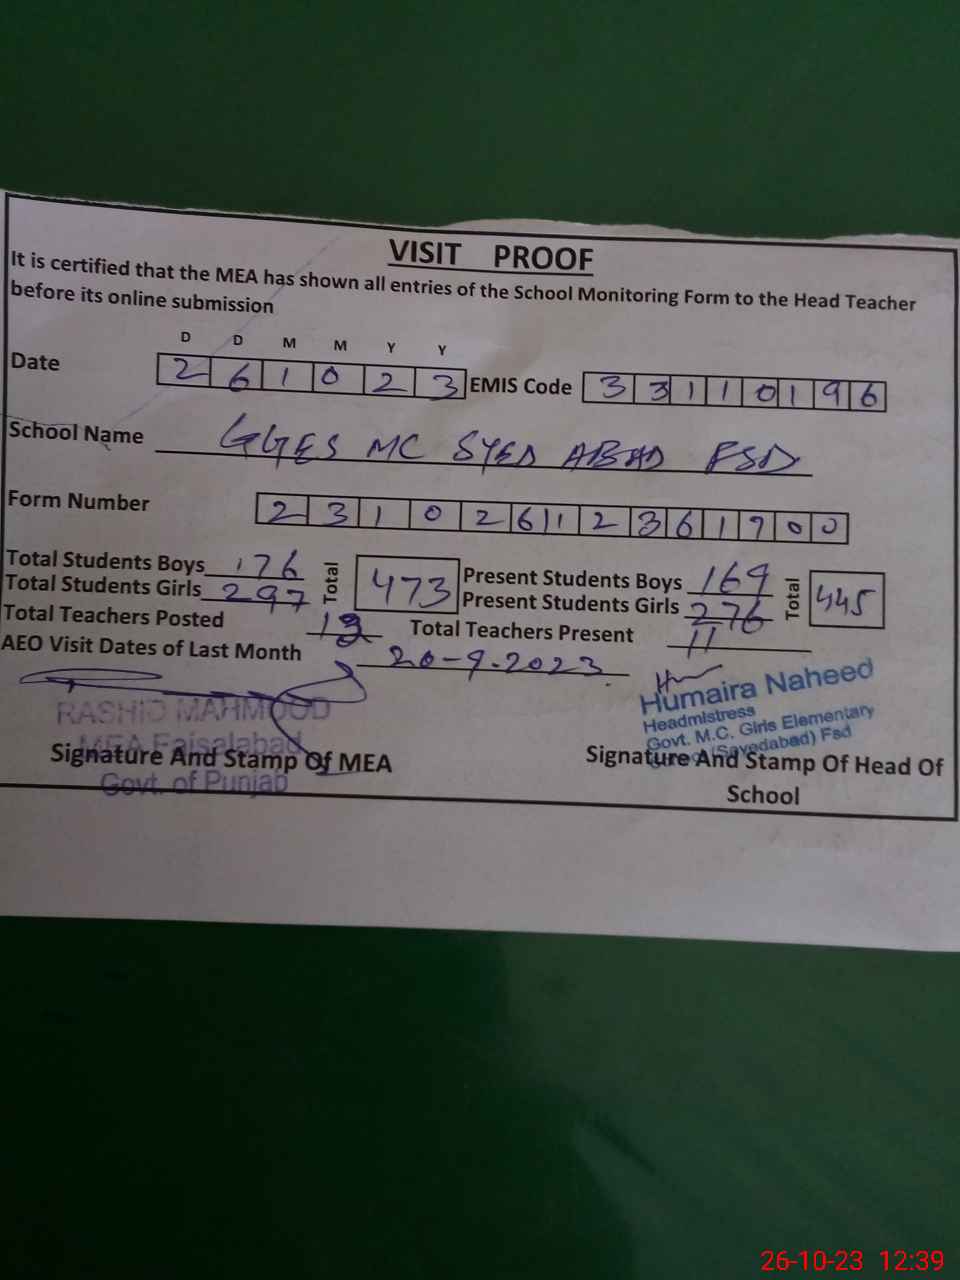 VISIT PROOF
It is certified that the MEA has shown all entries of the School Monitoring Form to the Head Teacher
before its online submission
D D M M Y Y
Date 2 6 1 0 2 3 EMIS Code 3 3 1 1 0 1 9 6
School Name GGES MC SYED ABAD FSD
Form Number 2 3 1 0 2 6 1 2 3 6 1 7 0 0
Total Students Boys 176 Total 473 Present Students Boys 169 Total 445
Total Students Girls 297 Present Students Girls 276
Total Teachers Posted Total Teachers Present 11
AEO Visit Dates of Last Month 20-9-2023
RASHID MAHMOOD
MEA Faisalabad
Govt. of Punjab
Signature And Stamp Of MEA
Humaira Naheed
Headmistress
Govt. M.C. Girls Elementary
(Sayedabad) Fsd
Signature And Stamp Of Head Of
School
26-10-23 12:39